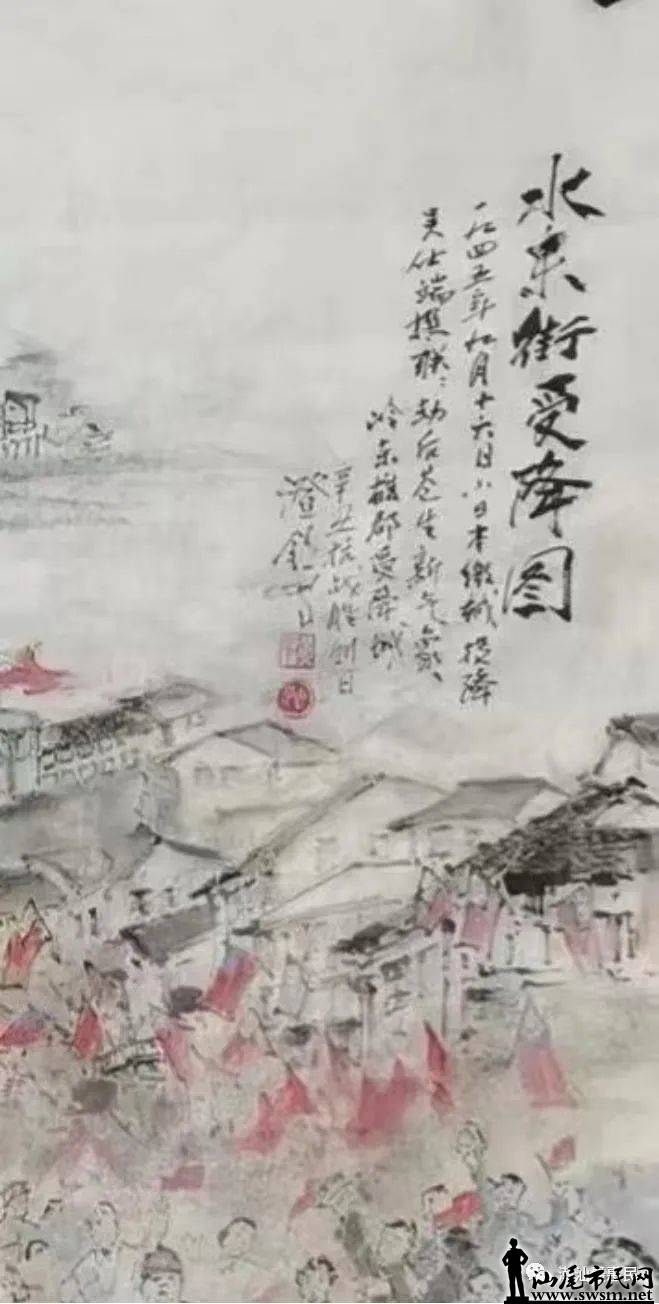 水东街受降图
一九四五年九月十六日小日本缴械投降
吴仕端撰联：劫后苍生新气象、
岭东雄郡受降城
辛丑抗战胜利日
澄钦
汕尾市民网
www.swsm.net